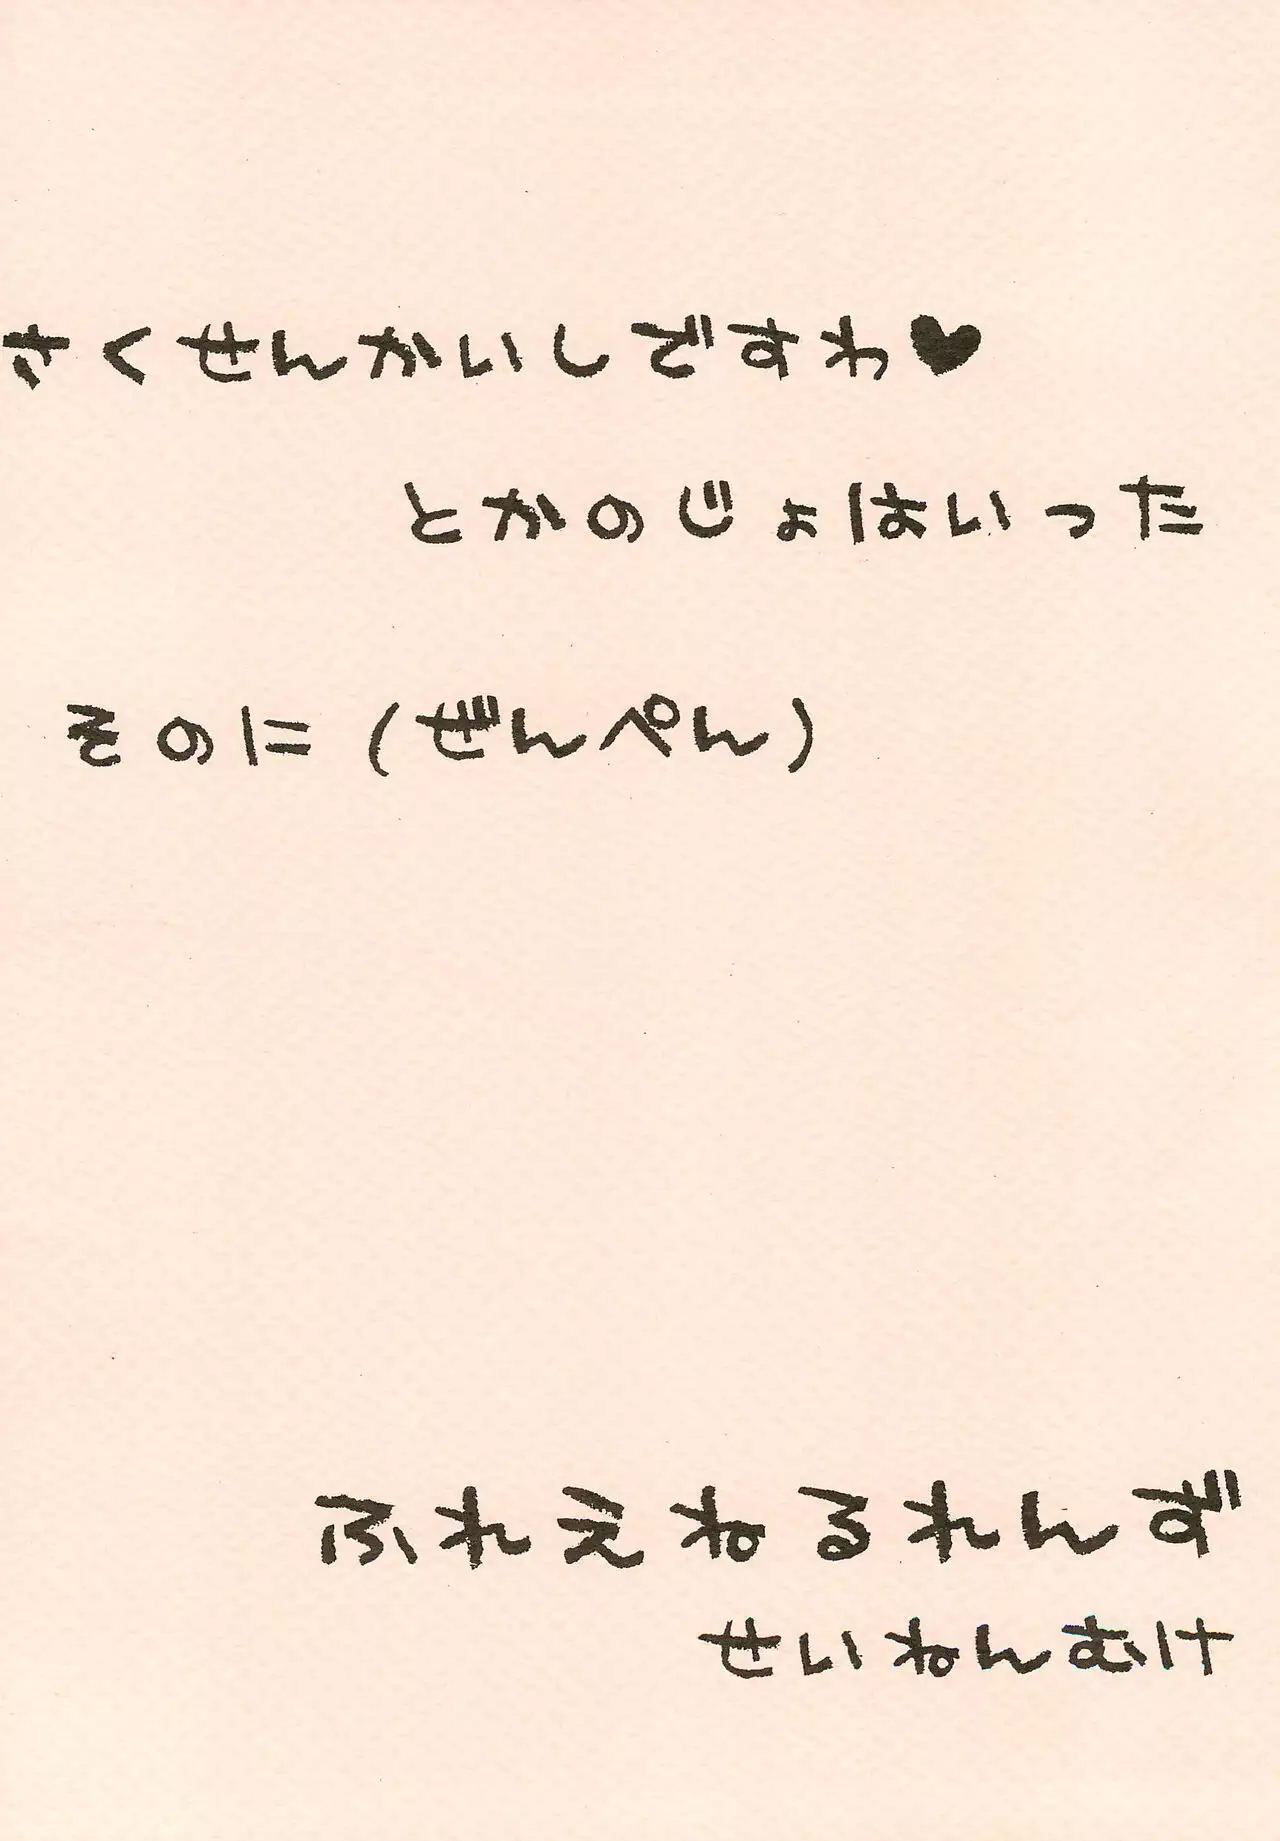 さくせんかいしですわ♥
とかのじょはいった
そのに(ぜんぺん)
ふれえねるれんず
せいねんむけ